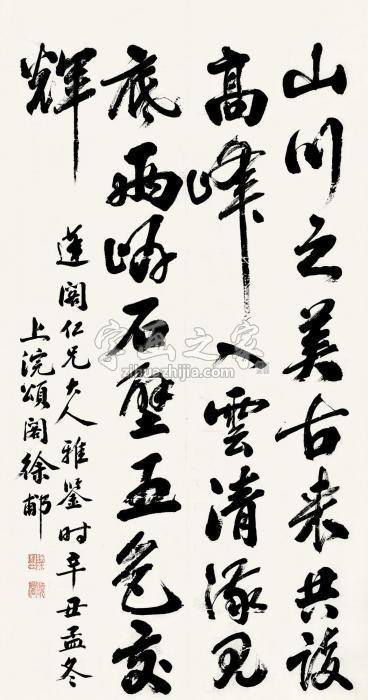 山川之美古来共談
高峰入雲清流見
底兩岸石壁五色交
輝
蓮閣仁兄大人雅鑒时辛丑孟冬
上浣頌閣徐郙
字画之家
zihuazhijia.com